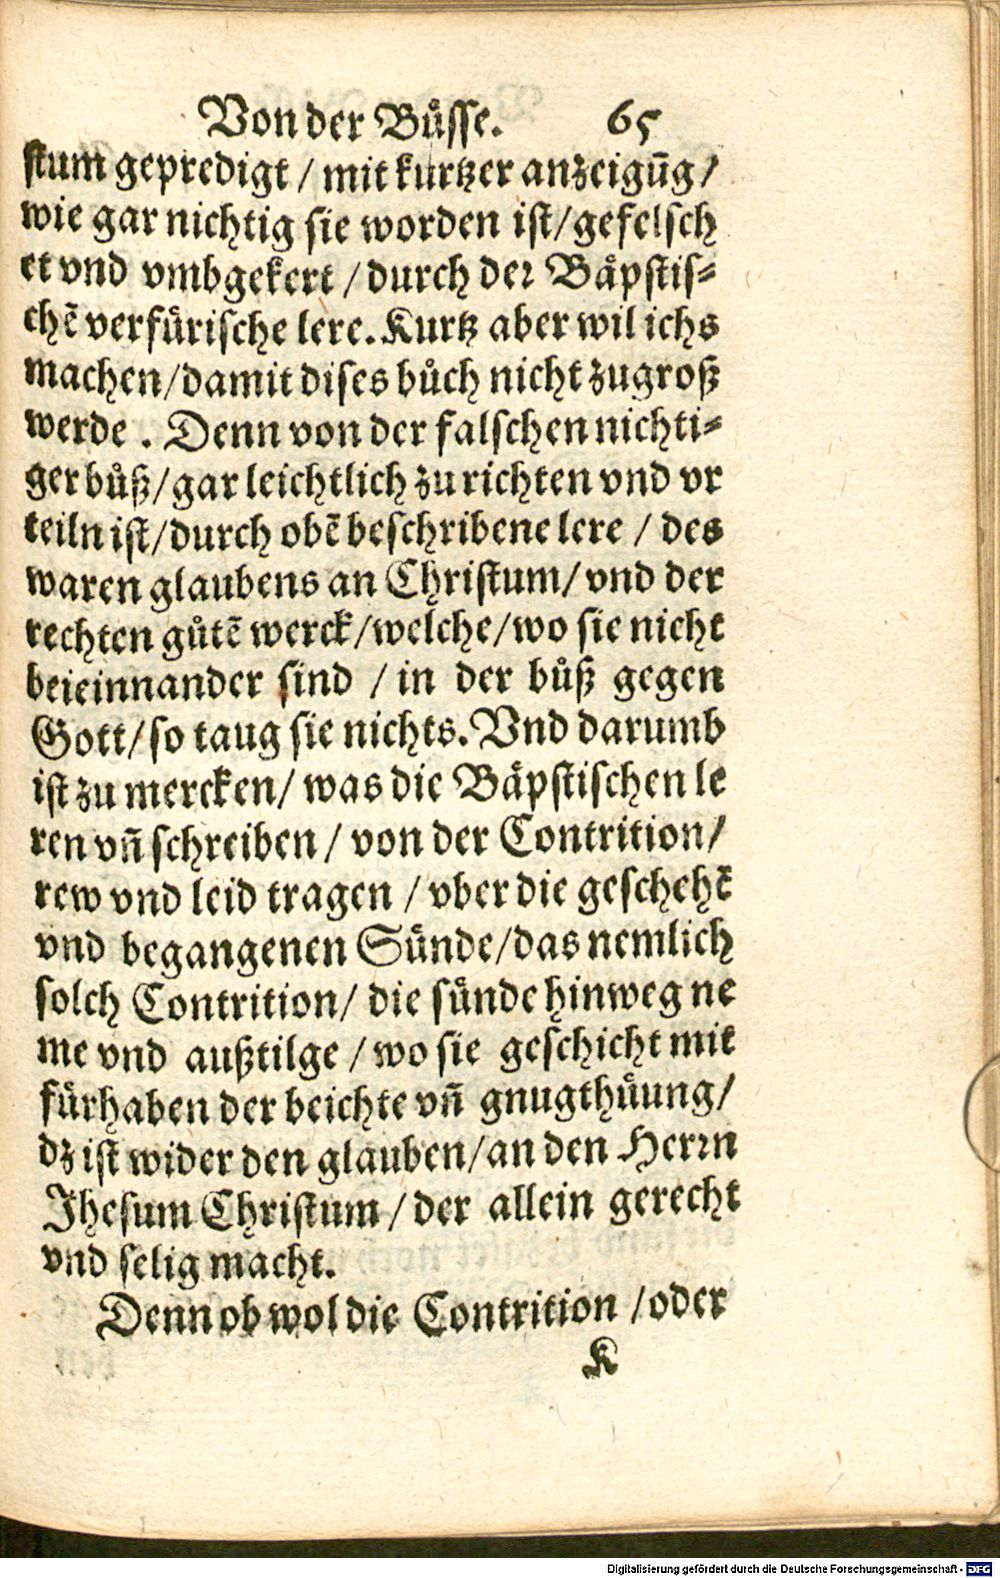 Von der Buͤſſe. 65
ſtum gepredigt / mit kurtzer anzeigūg /
wie gar nichtig ſie worden iſt / gefelſch
et vnd vmbgekert / durch deꝛ Baͤpſtiſ⸗
chē verfuͤriſche lere. Kurtz aber wil ichs
machen / damit diſes buͦch nicht zugroß
werde . Denn von der falſchen nichti⸗
ger buͦß / gar leichtlich zu richten vnd vr
teiln iſt / durch obē beſchribene lere / des
waren glaubens an Chriſtum / vnd der
rechten guͦtē werck / welche / wo ſie nicht
beieinnander ſind / in der buͦß gegen
Gott / ſo taug ſie nichts. Vnd darumb
iſt zu mercken / was die Baͤpſtiſchen le
ren vn̄ ſchreiben / von der Contrition /
rew vnd leid tragen / vber die geſchehē
vnd begangenen Suͤnde / das nemlich
ſolch Contrition / die ſuͤnde hinweg ne
me vnd außtilge / wo ſie geſchicht mit
fuͤrhaben der beichte vn̄ gnugthuͤung /
dz iſt wider den glauben / an den Herꝛn
Jheſum Chriſtum / der allein gerecht
vnd ſelig macht.
Denn ob wol die Contrition / oder
K
Digitalisierung gefördert durch die Deutsche Forschungsgemeinschaft - DFG